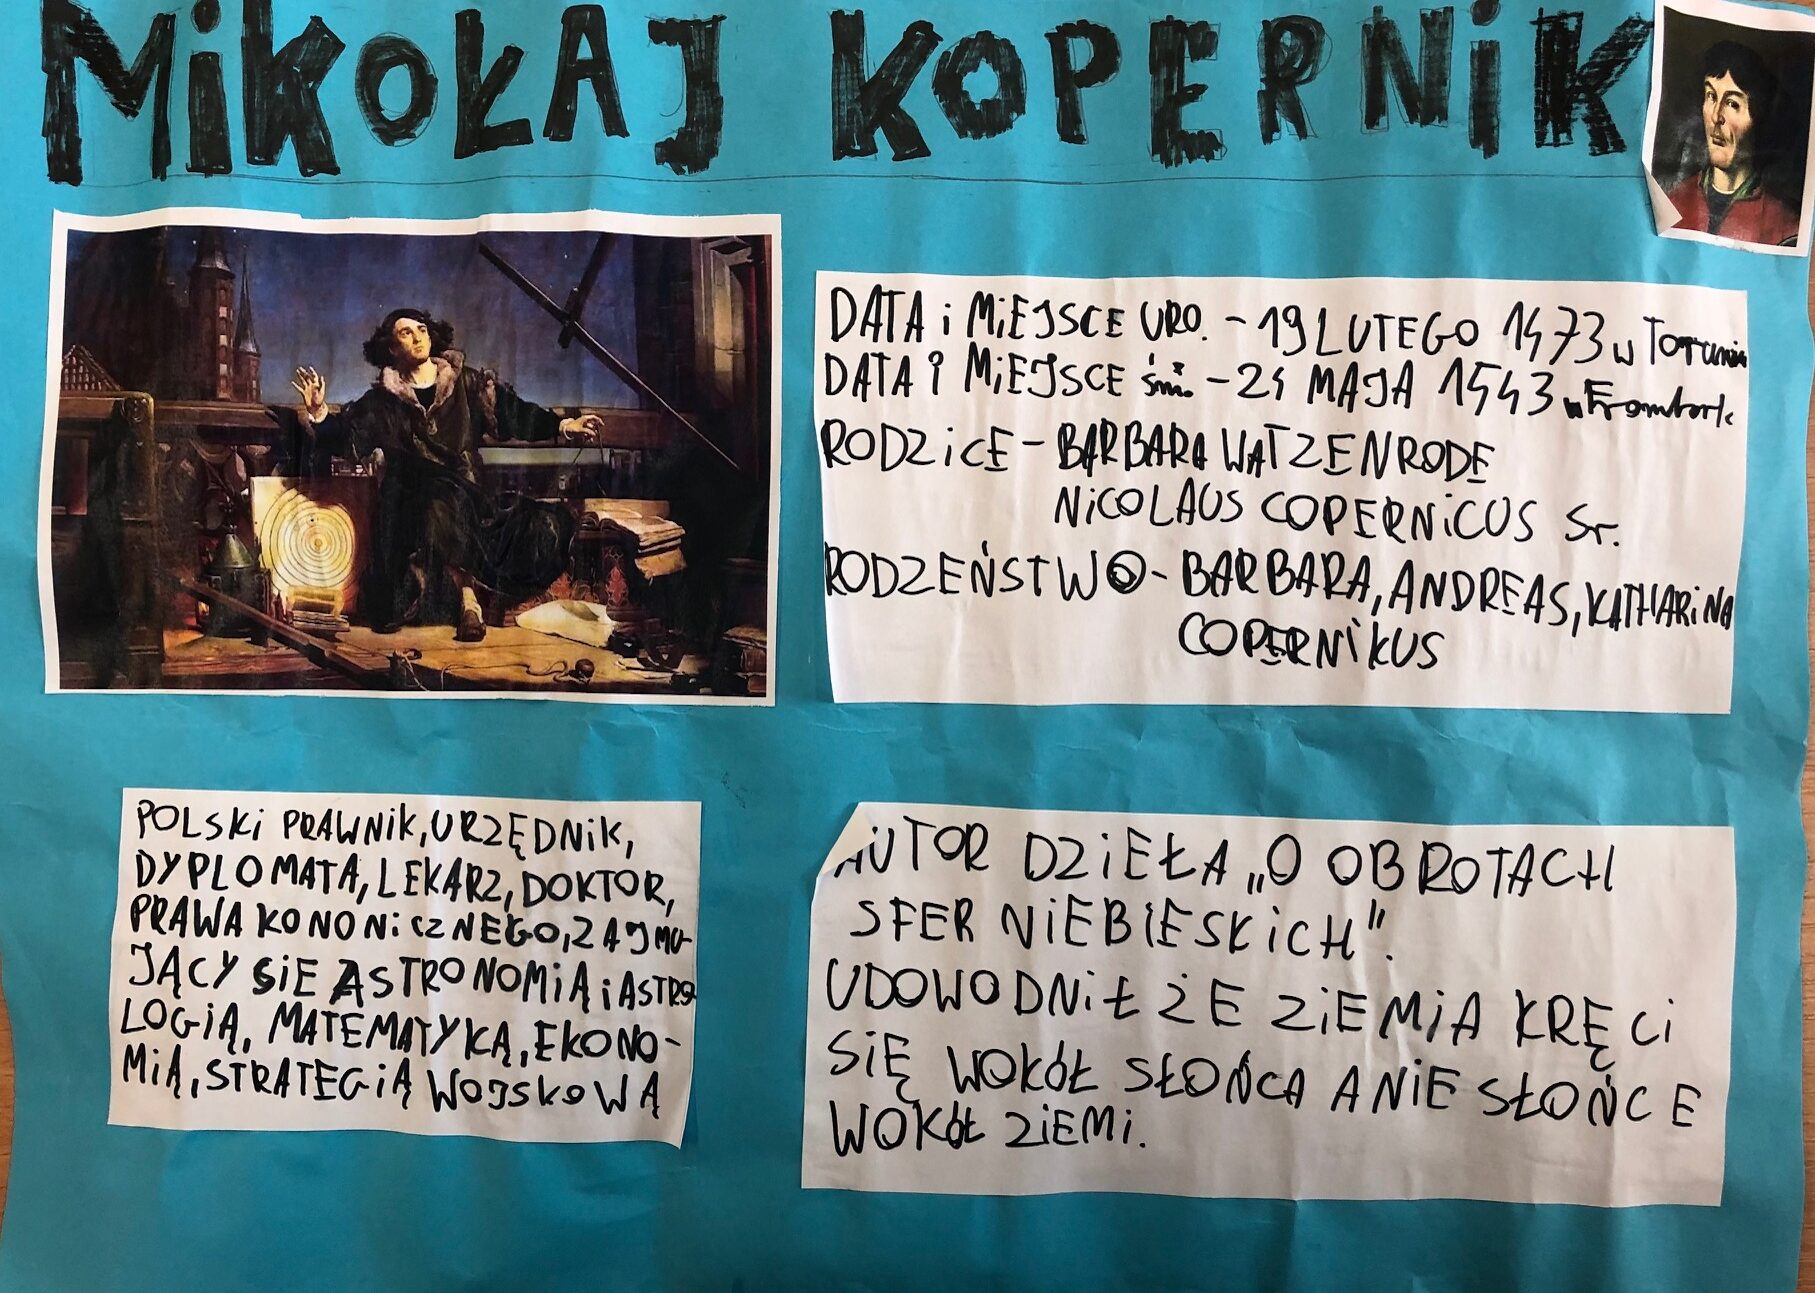 MiKOŁAJ KOPERNiK
DATA i MiEJSCE URO. - 19 LUTEGO 1473 w Toruniu
DATA i MiEJSCE śm. - 21 MAJA 1543 w Frombork
RODZiCE - BARBARA WATZENRODE
NiCOLAUS COPERNiCUS Sr.
RODZEŃSTWO - BARBARA, ANDREAS, KATHARiNA
COPERNiKUS
POLSKi PRAWNiK, URZĘDNiK,
DYPLOMATA, LEKARZ, DOKTOR,
PRAWA KONONiCZNEGO, ZAJMU-
JĄCY SiE ASTRONOMiĄ i ASTRO
LOGiĄ, MATEMATYKĄ, EKONO-
MiĄ, STRATEGiĄ WOJSKOWĄ
AUTOR DZiEŁA „O OBROTACH
SFER NiEBiESKiCH".
UDOWODNiŁ ŻE ZiEMiA KRĘCi
SiĘ WOKÓŁ SŁOŃCA A NiE SŁOŃCE
WOKÓŁ ZiEMi.